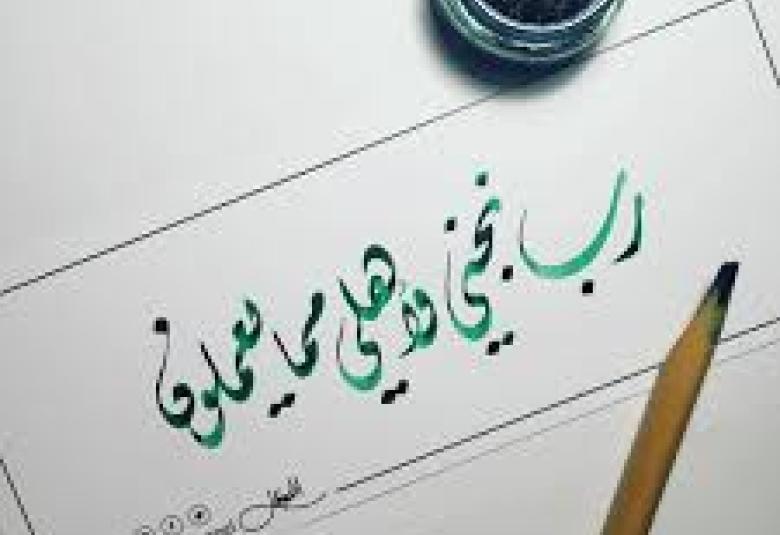 رب نجني وأهلي مما يعملون